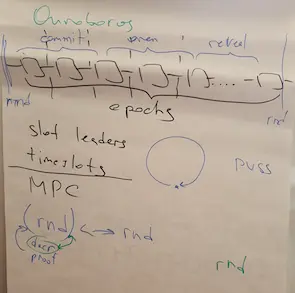 Ouroboros
commit open reveal
rnd rnd
epochs
slot leaders
timeslots
PVSS
MPC
(rnd) <-> rnd
decr
proof
rnd